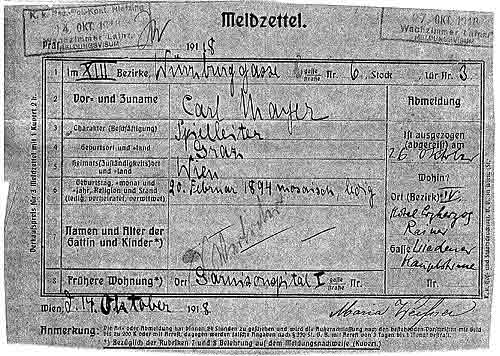 Meldzettel.
K. k. Bez.-Pol.-Kont. Hietzing
14. OKT. 1918
Wachzimmer Lainz.
MELDUNGSVISUM
27. OKT. 1918
Wachzimmer Lainz
MELDUNGSVISUM
Präs. 1918
1 Im XIII. Bezirke, Würzburggasse Gasse Straße Nr. 6, Stock Tür Nr. 3
2 Vor- und Zuname Carl Mayer
3 Charakter (Beschäftigung) Spielleiter
4 Geburtsort und -land Graz
5 Heimats(Zuständigkeits)ort und -land Wien
6 Geburtstag, -monat und -jahr, Religion und Stand (ledig, verheiratet, verwitwet) 20. Februar 1894 mosaisch, ledig
7 Namen und Alter der Gattin und Kinder*)
8 Frühere Wohnung*) Garnisonspital I Ort Bezirk Gasse Straße Nr.
Abmeldung
Ist ausgezogen (abgereist) am
26. Oktober
Wohin?
Ort (Bezirk) IV.
Hotel Erzherzog
Rainer
Gasse Wiedener
Hauptstrasse
Wien, 14. Oktober 1918
Maria
Anmerkung: Die An- oder Abmeldung hat binnen 24 Stunden zu geschehen und wird die Außerachtlassung nach den bestehenden Vorschriften mit Geld bis zu 200 K oder mit Arrest, dagegen werden falsche Angaben nach § 320 St. G. B. mit Arrest von 3 Tagen bis 1 Monat bestraft.
*) Bezüglich der Rubriken 7 und 8 Belehrung auf dem Meldungsnachweise (Kuvert).